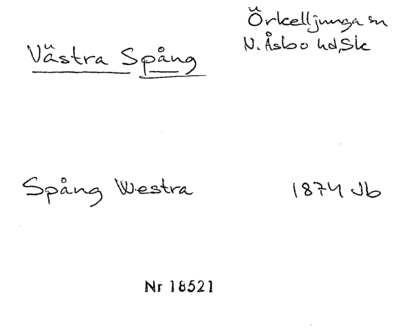 Örkelljunga sn
Västra Spång
N. Åsbo hd, Sk
Spång Westra 1874 Jb
Nr 18521